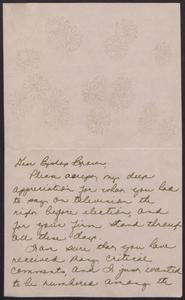 Dear Bishop Brown,
Please accept my deep
appreciation for what you had
to say on television the
night before election, and
for your firm stand through
all these days.
I am sure that you have
received many critical
comments, and I just wanted
to be numbered among the